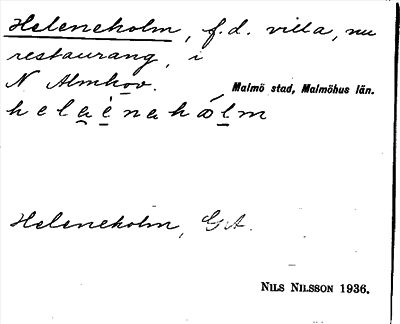 Heleneholm, f.d. villa, nu
restaurang, i
N Almhov.
Malmö stad, Malmöhus län.
helạènahólm
Heleneholm, GA.
NILS NILSSON 1936.